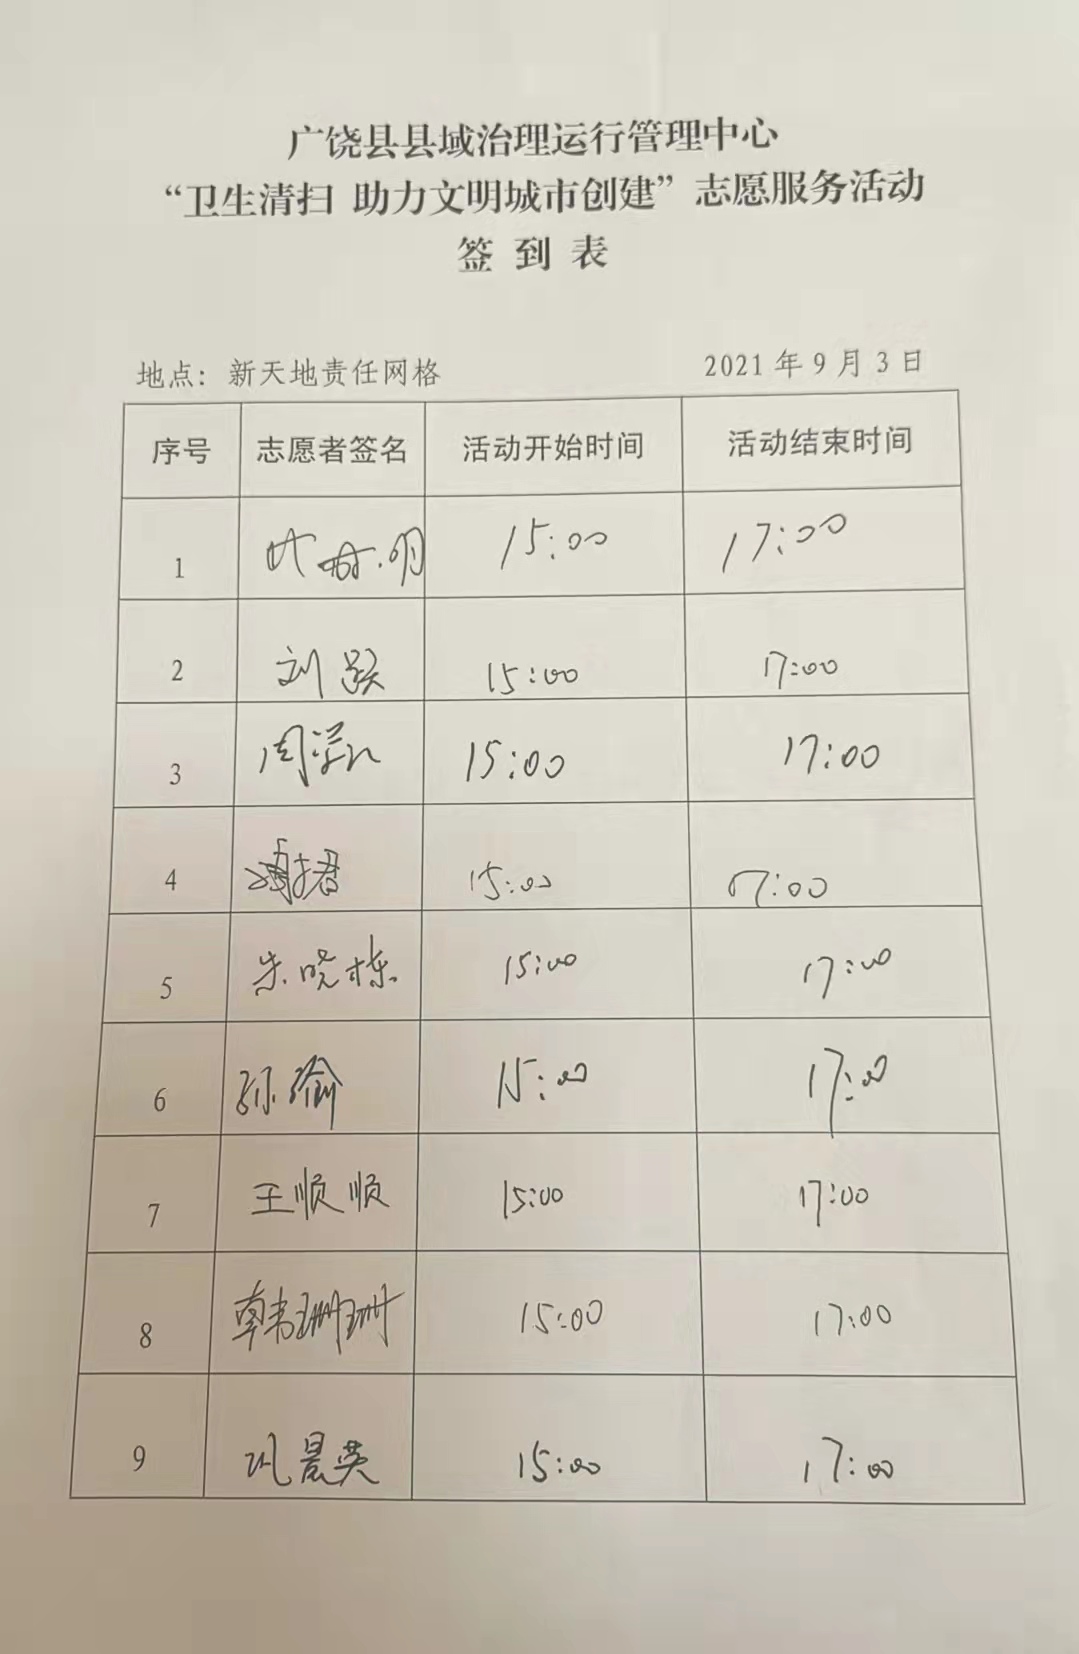 广饶县县域治理运行管理中心
“卫生清扫 助力文明城市创建”志愿服务活动
签 到 表
地点：新天地责任网格 2021年9月3日
序号 志愿者签名 活动开始时间 活动结束时间
1 15:00 17:00
2 刘跃 15:00 17:00
3 周 15:00 17:00
4 15:00 17:00
5 朱晓栋 15:00 17:00
6 孙瑜 15:00 17:00
7 王顺顺 15:00 17:00
8 韩珊珊 15:00 17:00
9 巩晨英 15:00 17:00